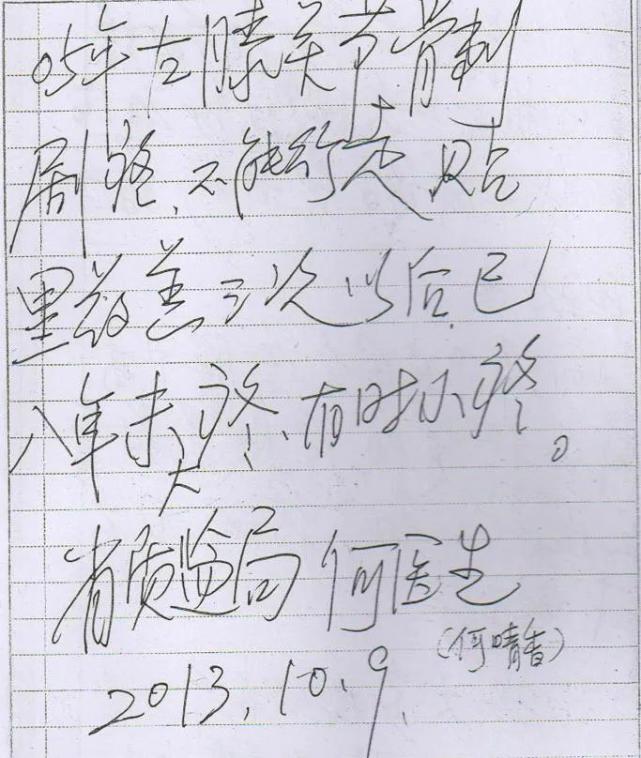 05年左膝关节骨刺
剧疼,不能行走 贴
黑药 三次以后已
八年未大疼、有时小疼。
省质 局 何医生
(何晴香)
2013.10.9.